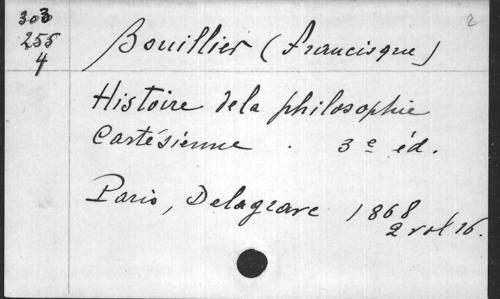 303
255
4
2
Bouillier (Francisque)
Histoire de la philosophie
Cartésienne . 3e éd.
Paris, Delagrave 1868
2 vol 16.